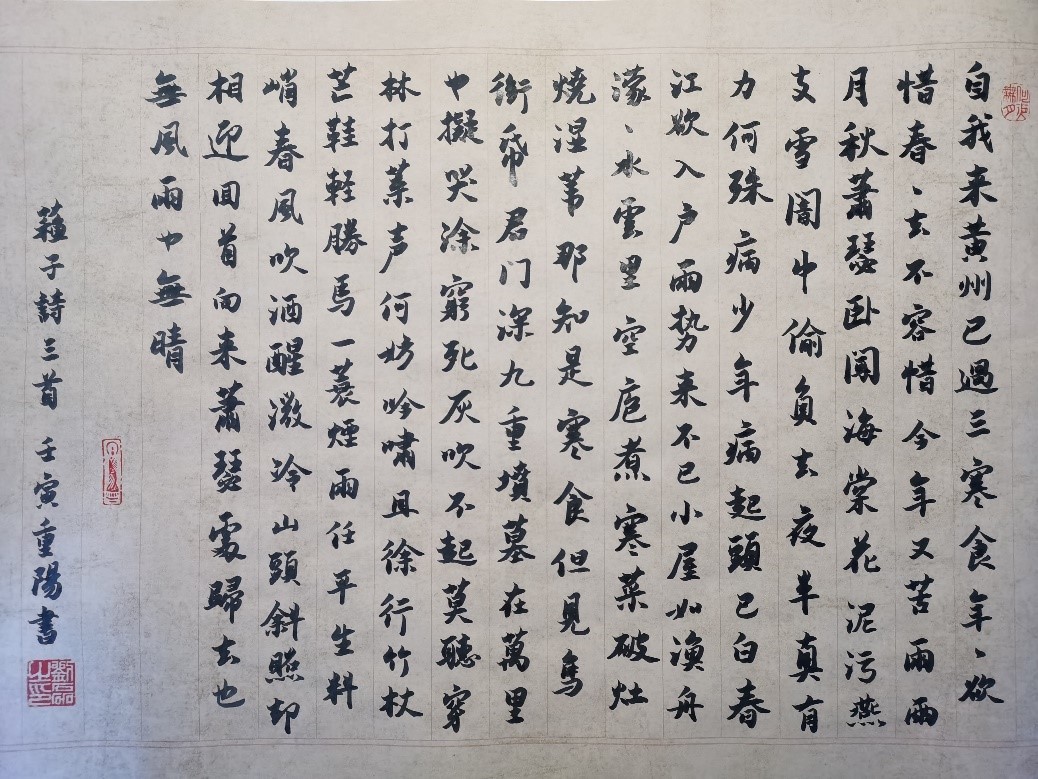 自我来黄州已過三寒食年、欲
惜春、去不容惜今年又苦雨兩
月秋蕭瑟卧聞海棠花泥污燕
支雪闇中偷負去夜半真有
力何殊病少年病起頭已白春
江欲入户雨势来不已小屋如漁舟
濛、水雲里空庖煮寒菜破灶
燒湿苇那知是寒食但見烏
銜帋君门深九重墳墓在萬里
也擬哭涂窮死灰吹不起莫聽穿
林打葉声何妨吟嘯且徐行竹杖
芒鞋軽勝馬一蓑煙雨任平生料
峭春風吹酒醒微冷山頭斜照却
相迎回首向来蕭瑟處歸去也
無風雨也無晴
蘓子詩三首 壬寅重陽書